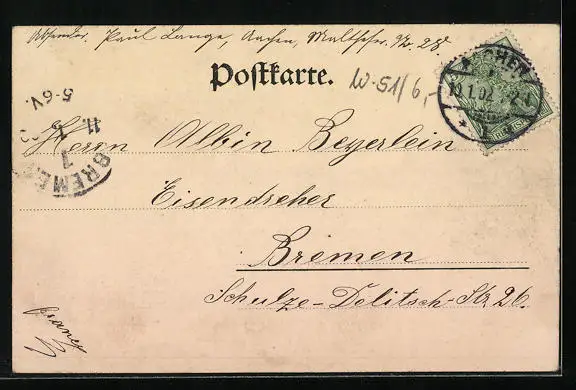 Absender. Paul Lange, Aachen, Malteser Str. 28.
Postkarte.
W-51/6,-
AACHEN
10.1.02.
1
BREMEN
7
11. 1.
5-6V.
Herrn Albin Beyerlein
Eisendreher
Bremen
Schulze-Delitsch-Str. 26.